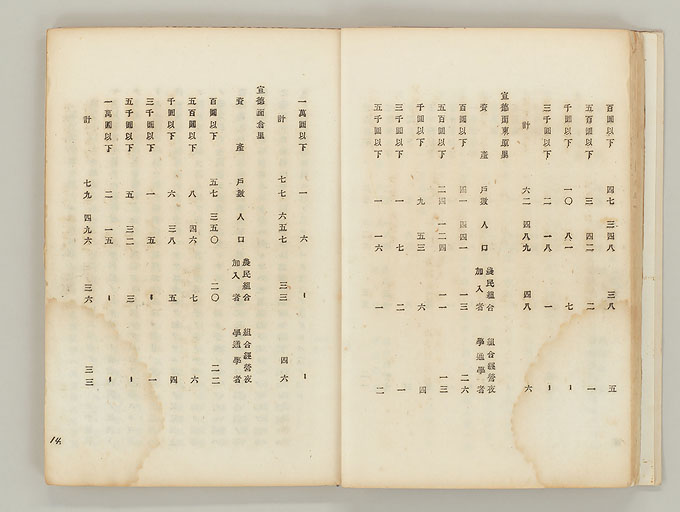 百圓以下 四七 三四八 三八 五
五百圓以下 三 四二 二 一
千圓以下 一〇 八一 七
三千圓以下 二 一八 一
計 六二 四八九 四八 六
宣德面東原里
資產 戶數 人口 農民組合加入者 組合經營夜學通學者
百圓以下 四一 四四一 一三 二六
五百圓以下 二四 一二四 一一 一三
千圓以下 九 五三 六 四
三千圓以下 一 七 二 一
五千圓以下 一 一六 一 二
一萬圓以下 一 六
計 七七 六五七 三三 四六
宣德面倉里
資產 戶數 人口 農民組合加入者 組合經營夜學通學者
百圓以下 五七 三五〇 二〇 二二
五百圓以下 八 四六 七 六
千圓以下 六 三八 五 四
三千圓以下 一 五 一
五千圓以下 五 三二 三
一萬圓以下 二 一五 一
計 七九 四九六 三六 三三
14.